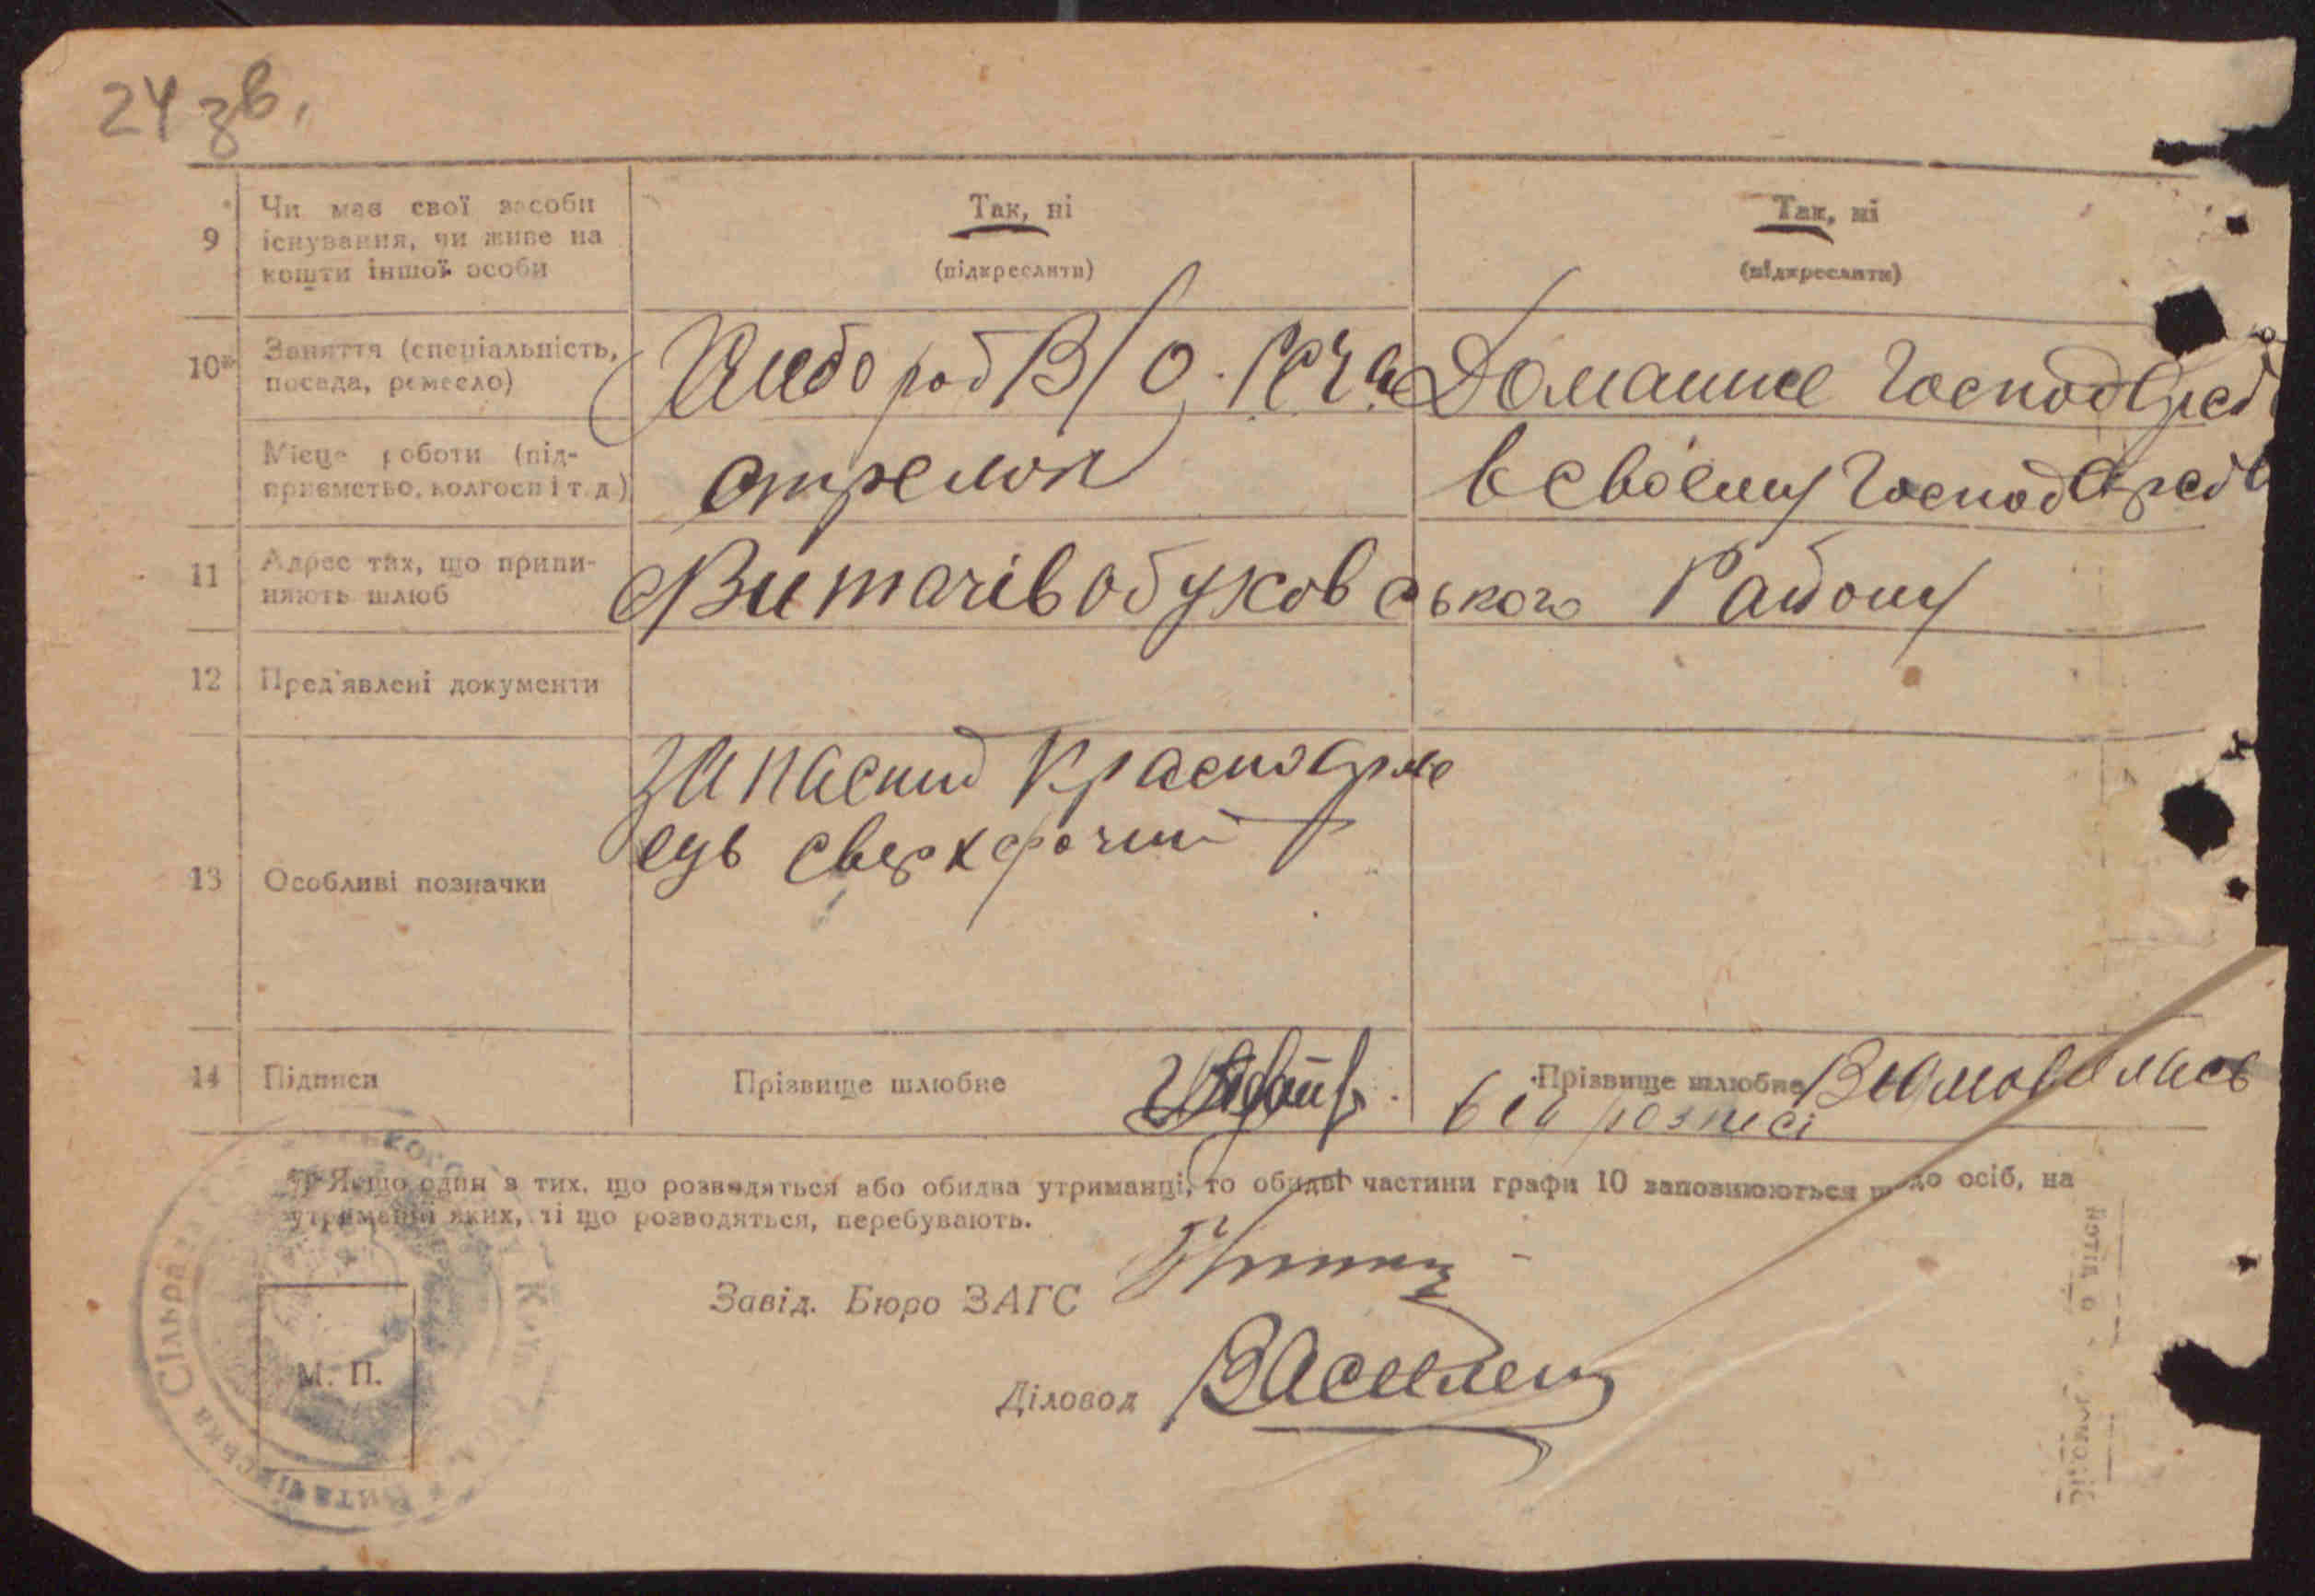 24 зв.
9
Чи має свої засоби
існування, чи живе на
кошти іншої особи
Так, ні
(підкреслити)
Так, ні
(підкреслити)
10*
Заняття (спеціальність,
посада, ремесло)
В/О.
Домашнє Господарст
Місце роботи (під-
приємство, колгосп і т. д.)
стрелок
в своєму Господарств
11
Адрес тих, що припи-
няють шлюб
Витачів Обуковського Району
12
Пред'явлені документи
13
Особливі позначки
Запасний Красноарме
єць сверхсрочний
14
Підписи
Прізвище шлюбне
Прізвище шлюбне
Відмовилась
від розписі
*) Якщо один з тих, що розводяться або обидва утриманці, то обидві частини графи 10 заповнюються що до осіб, на
утриманні яких, ті що розводяться, перебувають.
Завід. Бюро ЗАГС
Діловод
М. П.
Витачівська Сільрада